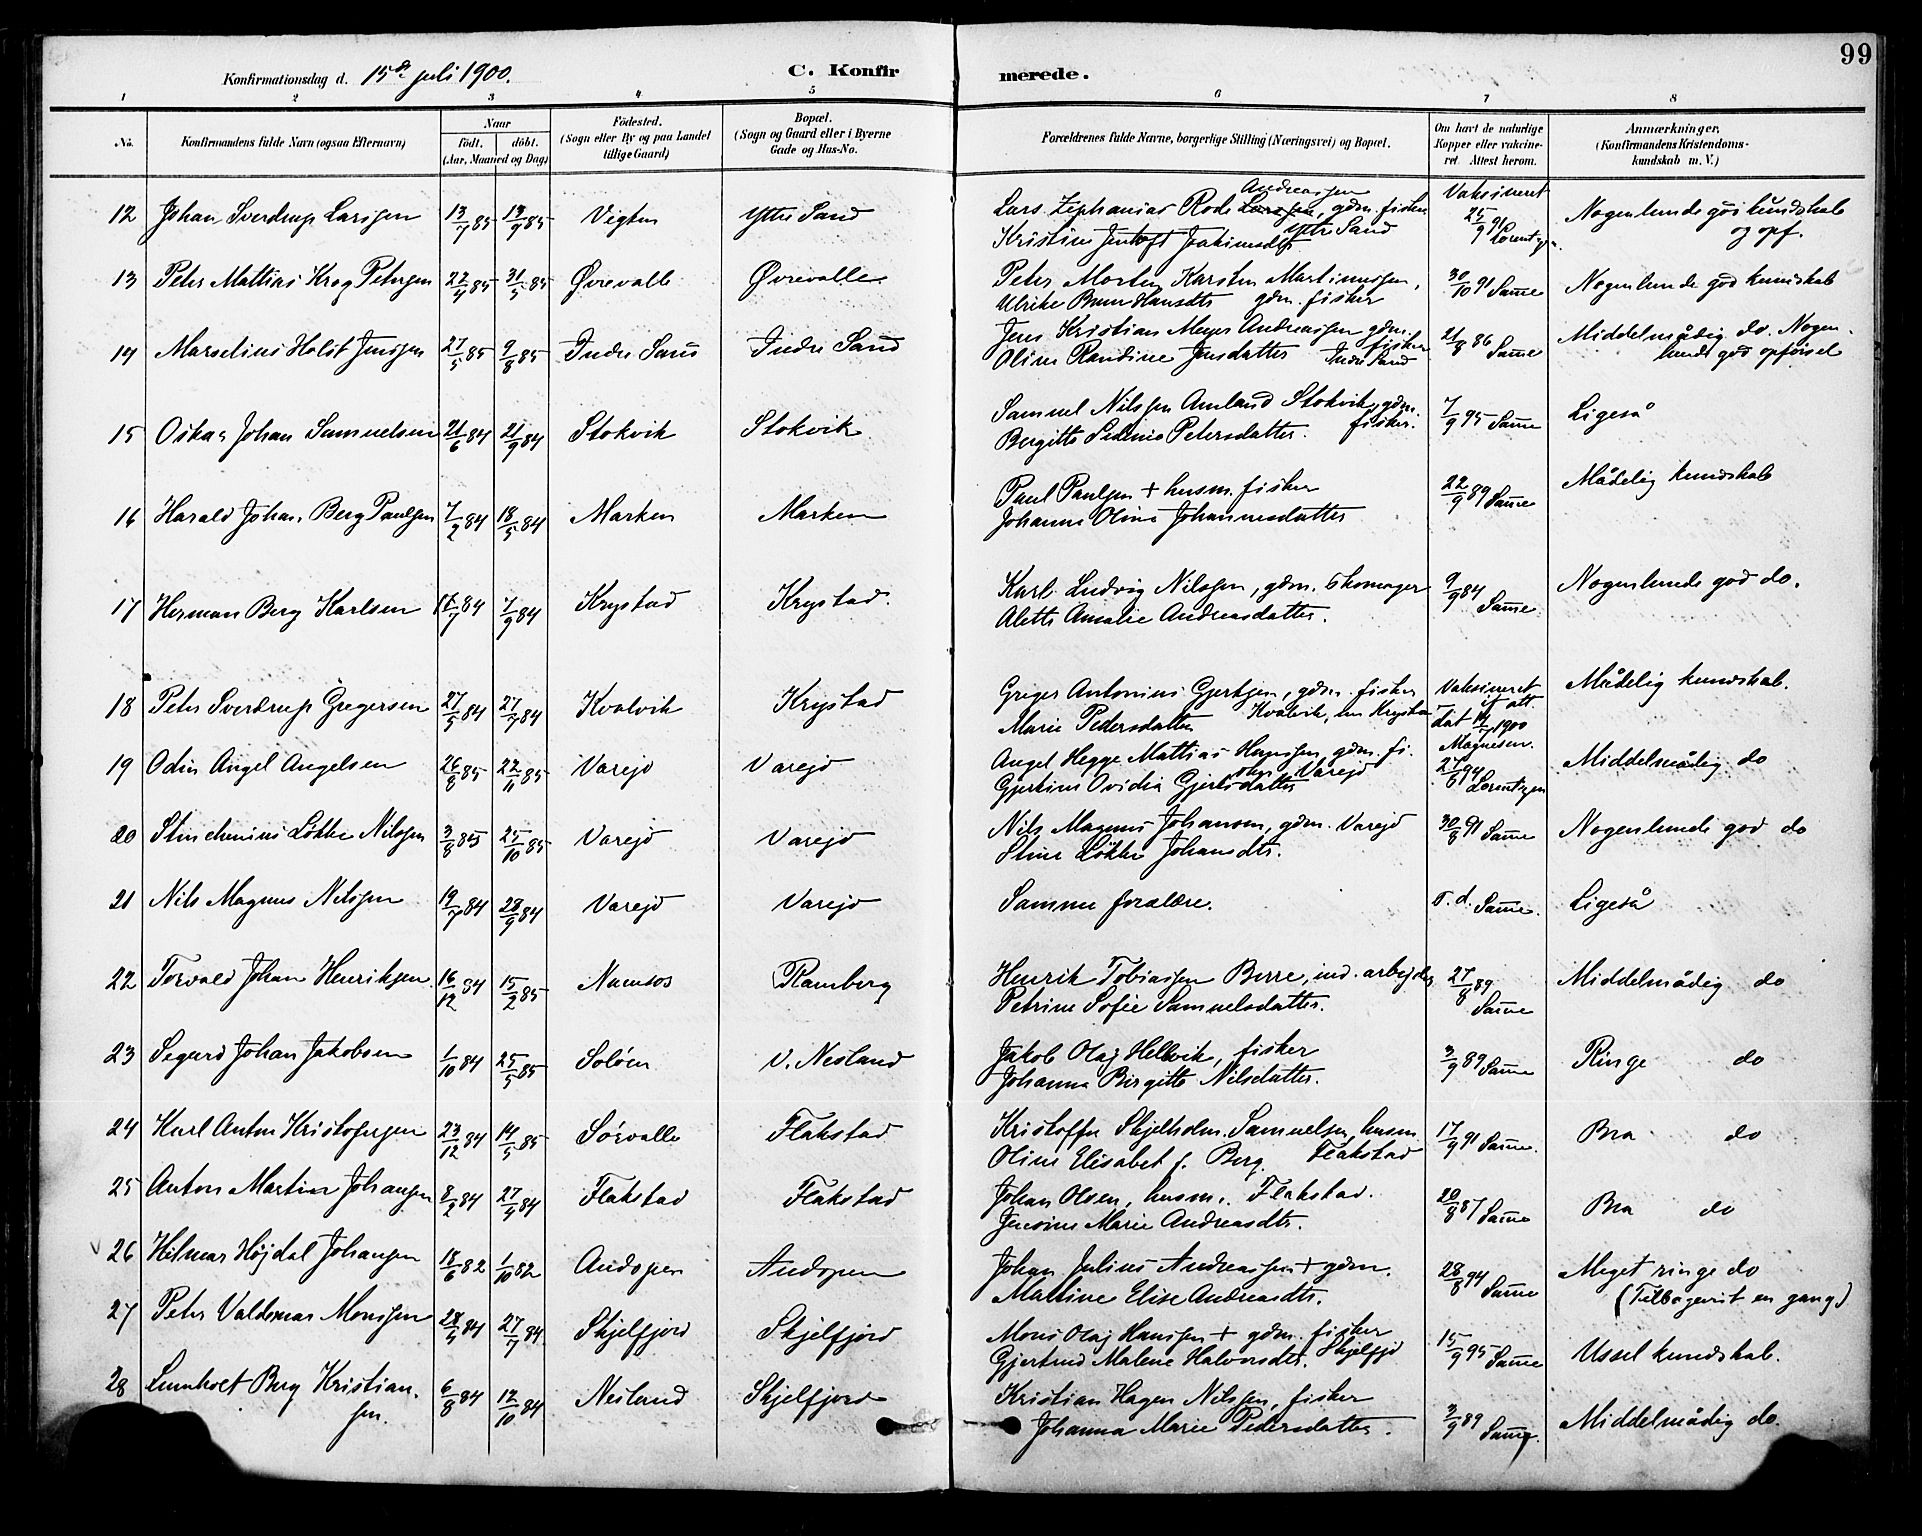 99
Konfirmationsdag d. 15de juli 1900. C. Konfirmerede.
1 2 3 4 5 6 7 8
No. Konfirmandens fulde Navn (ogsaa Efternavn) Naar født. døbt. (Aar, Maaned og Dag) Fødested. (Sogn eller By og paa Landet tillige Gaard) Bopæl. (Sogn og Gaard eller i Byerne Gade og Hus-No. Forældrenes fulde Navne, borgerlige Stilling (Næringsvei) og Bopæl. Om havt de naturlige Kopper eller vakcineret. Attest herom. Anmærkninger. (Konfirmandens Kristendomskundskab m. V.)
12 Johan Sverdrup Larssen 13/7 85 13/9 85 Vigten Ytre Sand Lars Zephanias Rode Andreassen, gdm. fisker Vaksineret 25/9 91 Lorentzen. Nogenlunde god kundskab
Kristine Jentoft Joakimsdtr Ytre Sand og opf.
13 Peter Mattias Krog Petersen 22/4 85 31/5 85 Øvrevalle Øvrevalle Peter Morten Karsten Martinussen, 30/10 91 Samme Nogenlunde god kundskab
Ulrike Bruun Hansdtr gdm. fisker
14 Marselius Holst Jenssen 27/5 85 9/8 85 Indre Sand Indre Sand Jens Kristian Meyer Andreassen gdm. fisker 21/8 86 Samme Middelmådig do. Nogen-
Oline Randine Jensdatter Indre Sand lunde god opførsel
15 Oskar Johan Samuelsen 21/6 84 21/9 84 Stokvik Stokvik Samuel Nilssen Amland Stokvik, gdm. 7/9 95 Samme Ligeså
Bergitte Petersdatter. fisker.
16 Harald Johan Berg Paulsen 7/2 84 18/5 84 Marken Marken Paul Paulsen + husm. fisker 22/9 89 Samme Mådelig kundskab
Johanna Oline Johannesdatter
17 Herman Berg Karlsen 17/7 84 7/9 84 Krystad Krystad. Karl Ludvig Nilssen, gdm. skomager 9/9 84 Samme. Nogenlunde god do.
Alette Amalie Andreasdatter.
18 Peter Sverdrup Gregersen 27/5 84 27/7 84 Kvalvik Krystad Greger Antonius Gjertsen, gdm. fisker Vaksineret if. att. Mådelig kundskab.
Marie Pedersdatter Kvalvik, nu Krystad dat 14/7 1900 Magnesen.
19 Odin Angel Angelsen 26/8 85 22/11 85 Varejo Varejo Angel Hegge Mattias Hanssen gdm. fi- 27/6 94 Lorentzen Middelmådig do
Gjertine Ovidia Gjertsdatter sker Varejo
20 Løkke Nilssen 3/8 85 25/10 85 Varejo Varejo Nils Magnus Johansen, gdm. Varejo 30/8 91 Samme Nogenlunde god do
Stine Løkke Johansdtr.
21 Nils Magnus Nilssen 19/7 84 28/9 84 Varejo Varejo Samme forældre. s. d. Samme. Ligeså
22 Torvald Johan Henriksen 16/12 84 15/2 85 Namsos Ramberg Henrik Tobiassen Berre, ind. arbejder 27/8 89 Samme Middelmådig do
Petrine Sofie Samuelsdatter.
23 Segurd Johan Jakobsen 1/10 84 25/5 85 Soløen V. Nesland Jakob Olaj Hellvik, fisker 3/9 89 Samme Ringe do
Johanna Birgitte Nilsdatter.
24 Karl Anton Kristofersen 23/12 84 14/5 85 Sørvalle Flakstad Kristoffer Skjelholm Samuelsen, husm 17/9 91 Samme. Bra do
Oline Elisabet f. Berg. Flakstad
25 Anton Martin Johansen 8/2 84 27/4 84 Flakstad Flakstad Johan Olsen, husm. Flakstad. 20/8 87 Samme Bra do
Jensine Marie Andreasdtr.
26 Hilmar Højdal Johansen 18/6 82 1/10 82 Andopen Andopen Johan Julius Andreassen + gdm. 28/8 94 Samme Meget ringe do
Maltine Elise Andreasdtr. (Tilbagevist en gang)
27 Peter Valdemar Monssen 28/5 84 27/7 84 Skjelfjord Skjelfjord Mons Olaj Hanssen + gdm. fisker 15/9 95 Samme Ussel kundskab.
Gjertrud Malene Halvorsdtr. Skjelfjd
28 Lennhoet Berg Kristian- 6/8 84 12/10 84 Nesland Skjelfjord Kristian Hagen Nilssen, fisker 3/9 89 Samme Middelmådig do.
sen. Johanna Marie Pedersdatter.